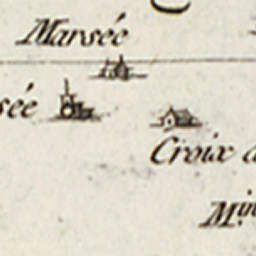 Marsée
sée
Croix d
Min